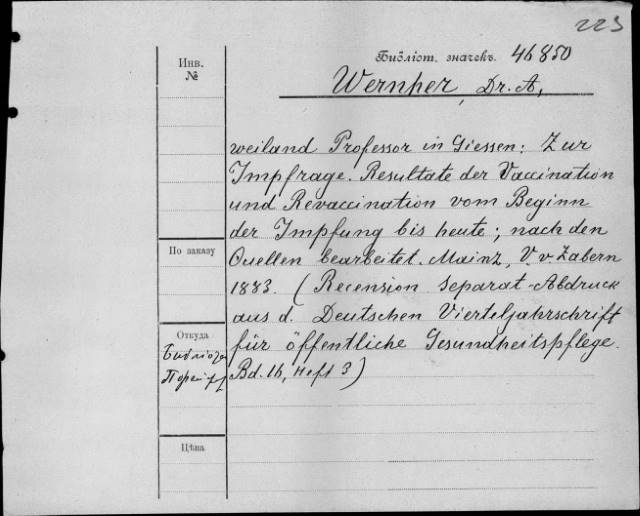 223
Библіот. значекъ. 46850
Инв.
№
Wernher, Dr. A,
weiland Professor in Giessen: Zur
Impfrage. Resultate der Vaccination
und Revaccination vom Beginn
der Impfung bis heute; nach den
Quellen bearbeitet. Mainz, V. v. Zabern
1883. (Recension Separat-Abdruck
aus d. Deutschen Vierteljahrschrift
für öffentliche Gesundheitspflege.
Bd. 16, Heft 3)
По заказу
Откуда
Цѣна